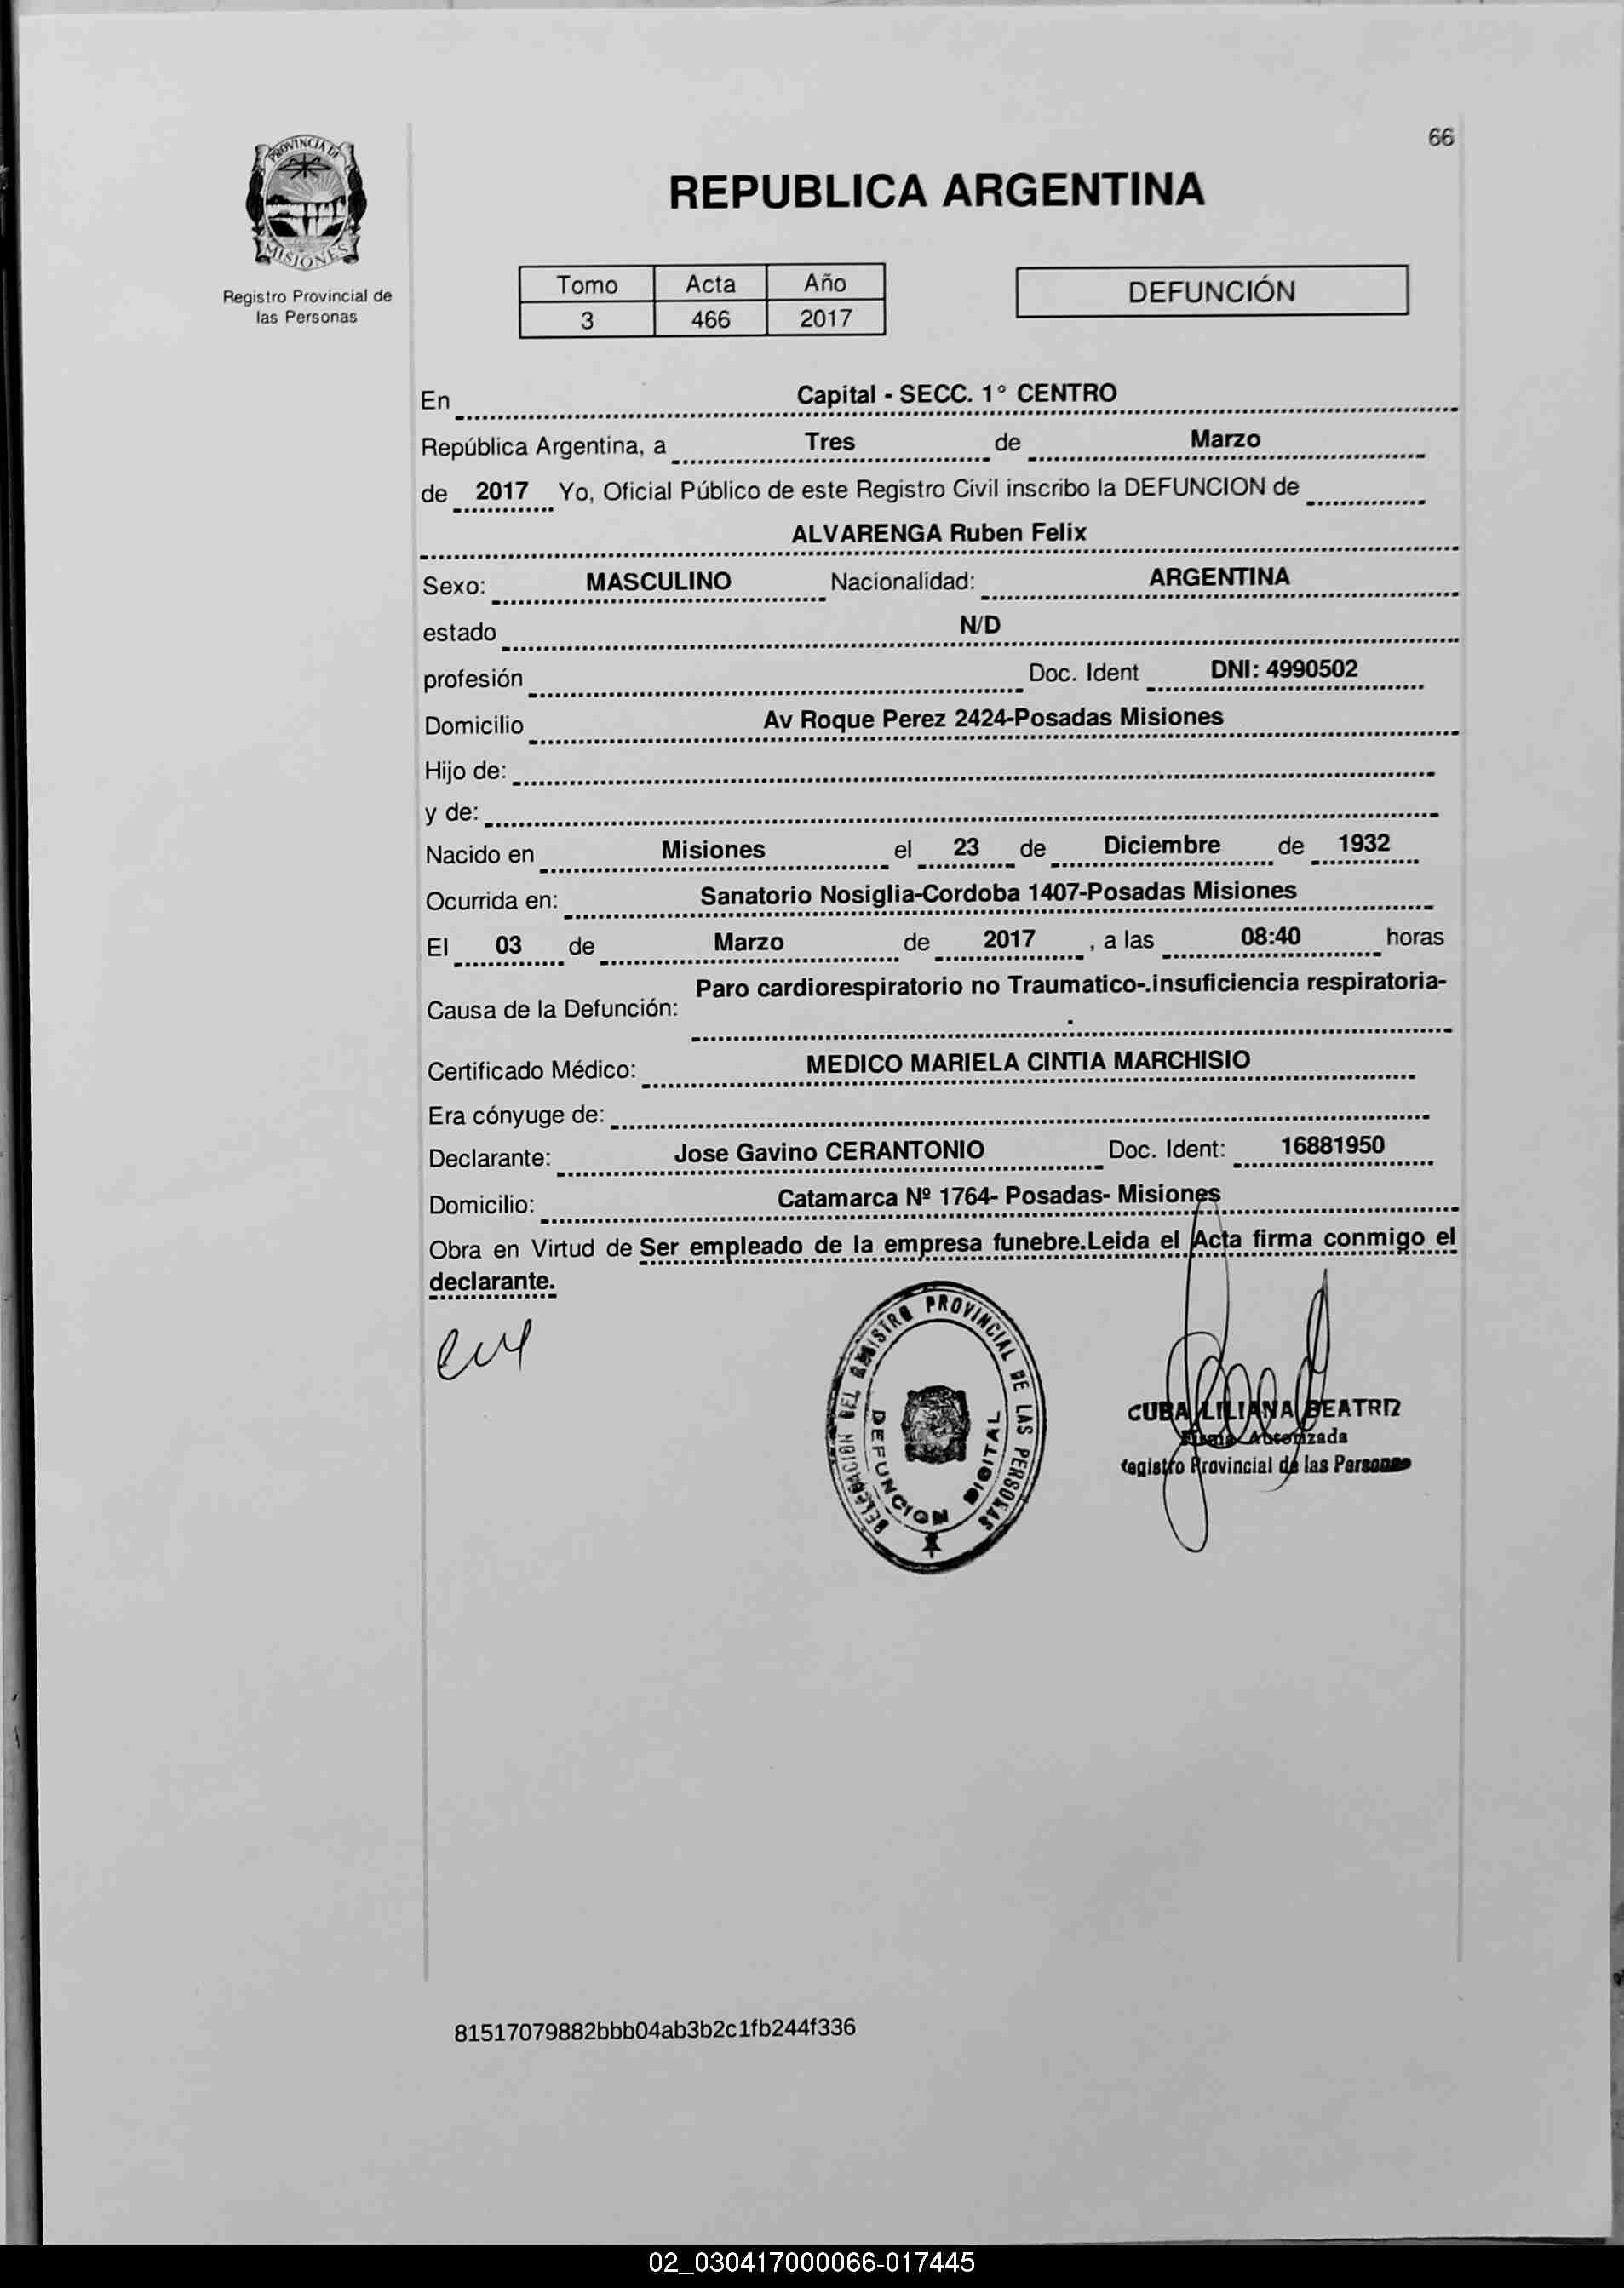 66
PROVINCIA DE
MISIONES
Registro Provincial de
las Personas
REPUBLICA ARGENTINA
Tomo Acta Año
3 466 2017
DEFUNCIÓN
En Capital - SECC. 1° CENTRO
República Argentina, a Tres de Marzo
de 2017 Yo, Oficial Público de este Registro Civil inscribo la DEFUNCION de
ALVARENGA Ruben Felix
Sexo: MASCULINO Nacionalidad: ARGENTINA
estado N/D
profesión Doc. Ident DNI: 4990502
Domicilio Av Roque Perez 2424-Posadas Misiones
Hijo de:
y de:
Nacido en Misiones el 23 de Diciembre de 1932
Ocurrida en: Sanatorio Nosiglia-Cordoba 1407-Posadas Misiones
El 03 de Marzo de 2017 , a las 08:40 horas
Causa de la Defunción: Paro cardiorespiratorio no Traumatico-.insuficiencia respiratoria-
.
Certificado Médico: MEDICO MARIELA CINTIA MARCHISIO
Era cónyuge de:
Declarante: Jose Gavino CERANTONIO Doc. Ident: 16881950
Domicilio: Catamarca Nº 1764- Posadas- Misiones
Obra en Virtud de Ser empleado de la empresa funebre.Leida el Acta firma conmigo el
declarante.
DELEGACION DEL REGISTRO PROVINCIAL DE LAS PERSONAS
DEFUNCION DIGITAL
CUBA LILIANA BEATRIZ
Firma Autorizada
Registro Provincial de las Personas
81517079882bbb04ab3b2c1fb244f336
02_030417000066-017445